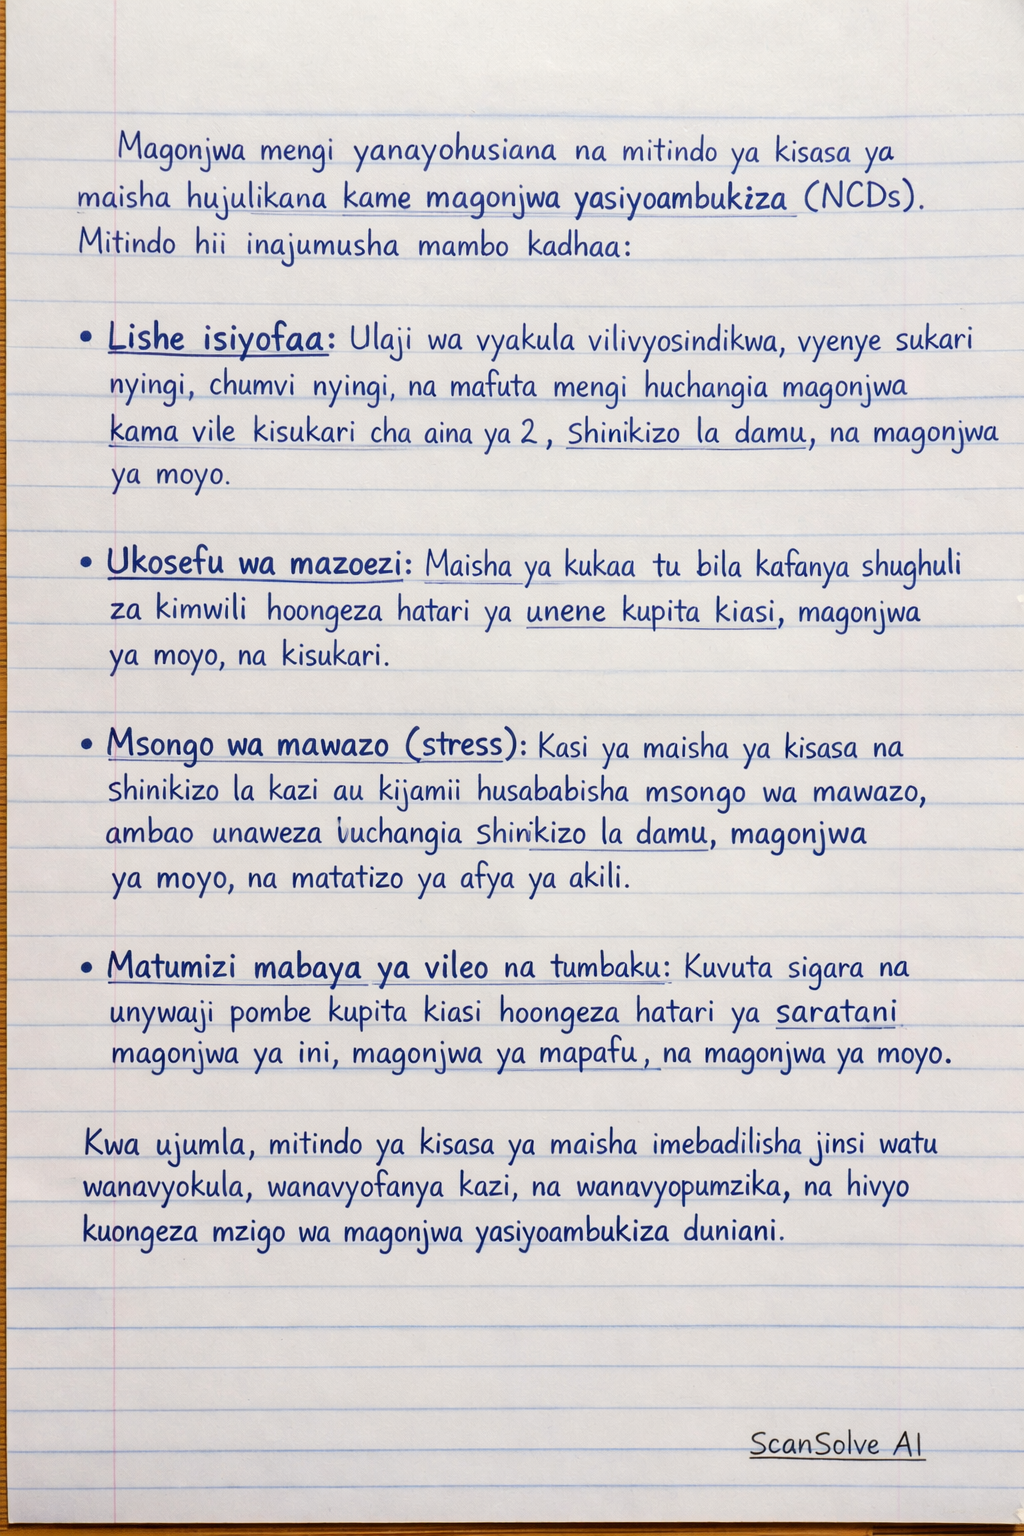 Magonjwa mengi yanayohusiana na mitindo ya kisasa ya
maisha hujulikana kame magonjwa yasiyoambukiza (NCDs).
Mitindo hii inajumusha mambo kadhaa:
• Lishe isiyofaa: Ulaji wa vyakula vilivyosindikwa, vyenye sukari
nyingi, chumvi nyingi, na mafuta mengi huchangia magonjwa
kama vile kisukari cha aina ya 2, Shinikizo la damu, na magonjwa
ya moyo.
• Ukosefu wa mazoezi: Maisha ya kukaa tu bila kafanya shughuli
za kimwili hoongeza hatari ya unene kupita kiasi, magonjwa
ya moyo, na kisukari.
• Msongo wa mawazo (stress): Kasi ya maisha ya kisasa na
shinikizo la kazi au kijamii husababisha msongo wa mawazo,
ambao unaweza shinikizo la damu, magonjwa
ya moyo, na matatizo ya afya ya akili.
• Matumizi mabaya ya vileo na tumbaku: Kuvuta sigara na
pombe kupita kiasi hoongeza hatari ya saratani
magonjwa ya ini, magonjwa ya mapafu, na magonjwa ya moyo.
Kwa ujumla, mitindo ya kisasa ya maisha imebadilisha jinsi watu
wanavyokula, wanavyofanya kazi, na wanavyopumzika, na hivyo
kuongeza mzigo wa magonjwa yasiyoambukiza duniani.
ScanSolve AI